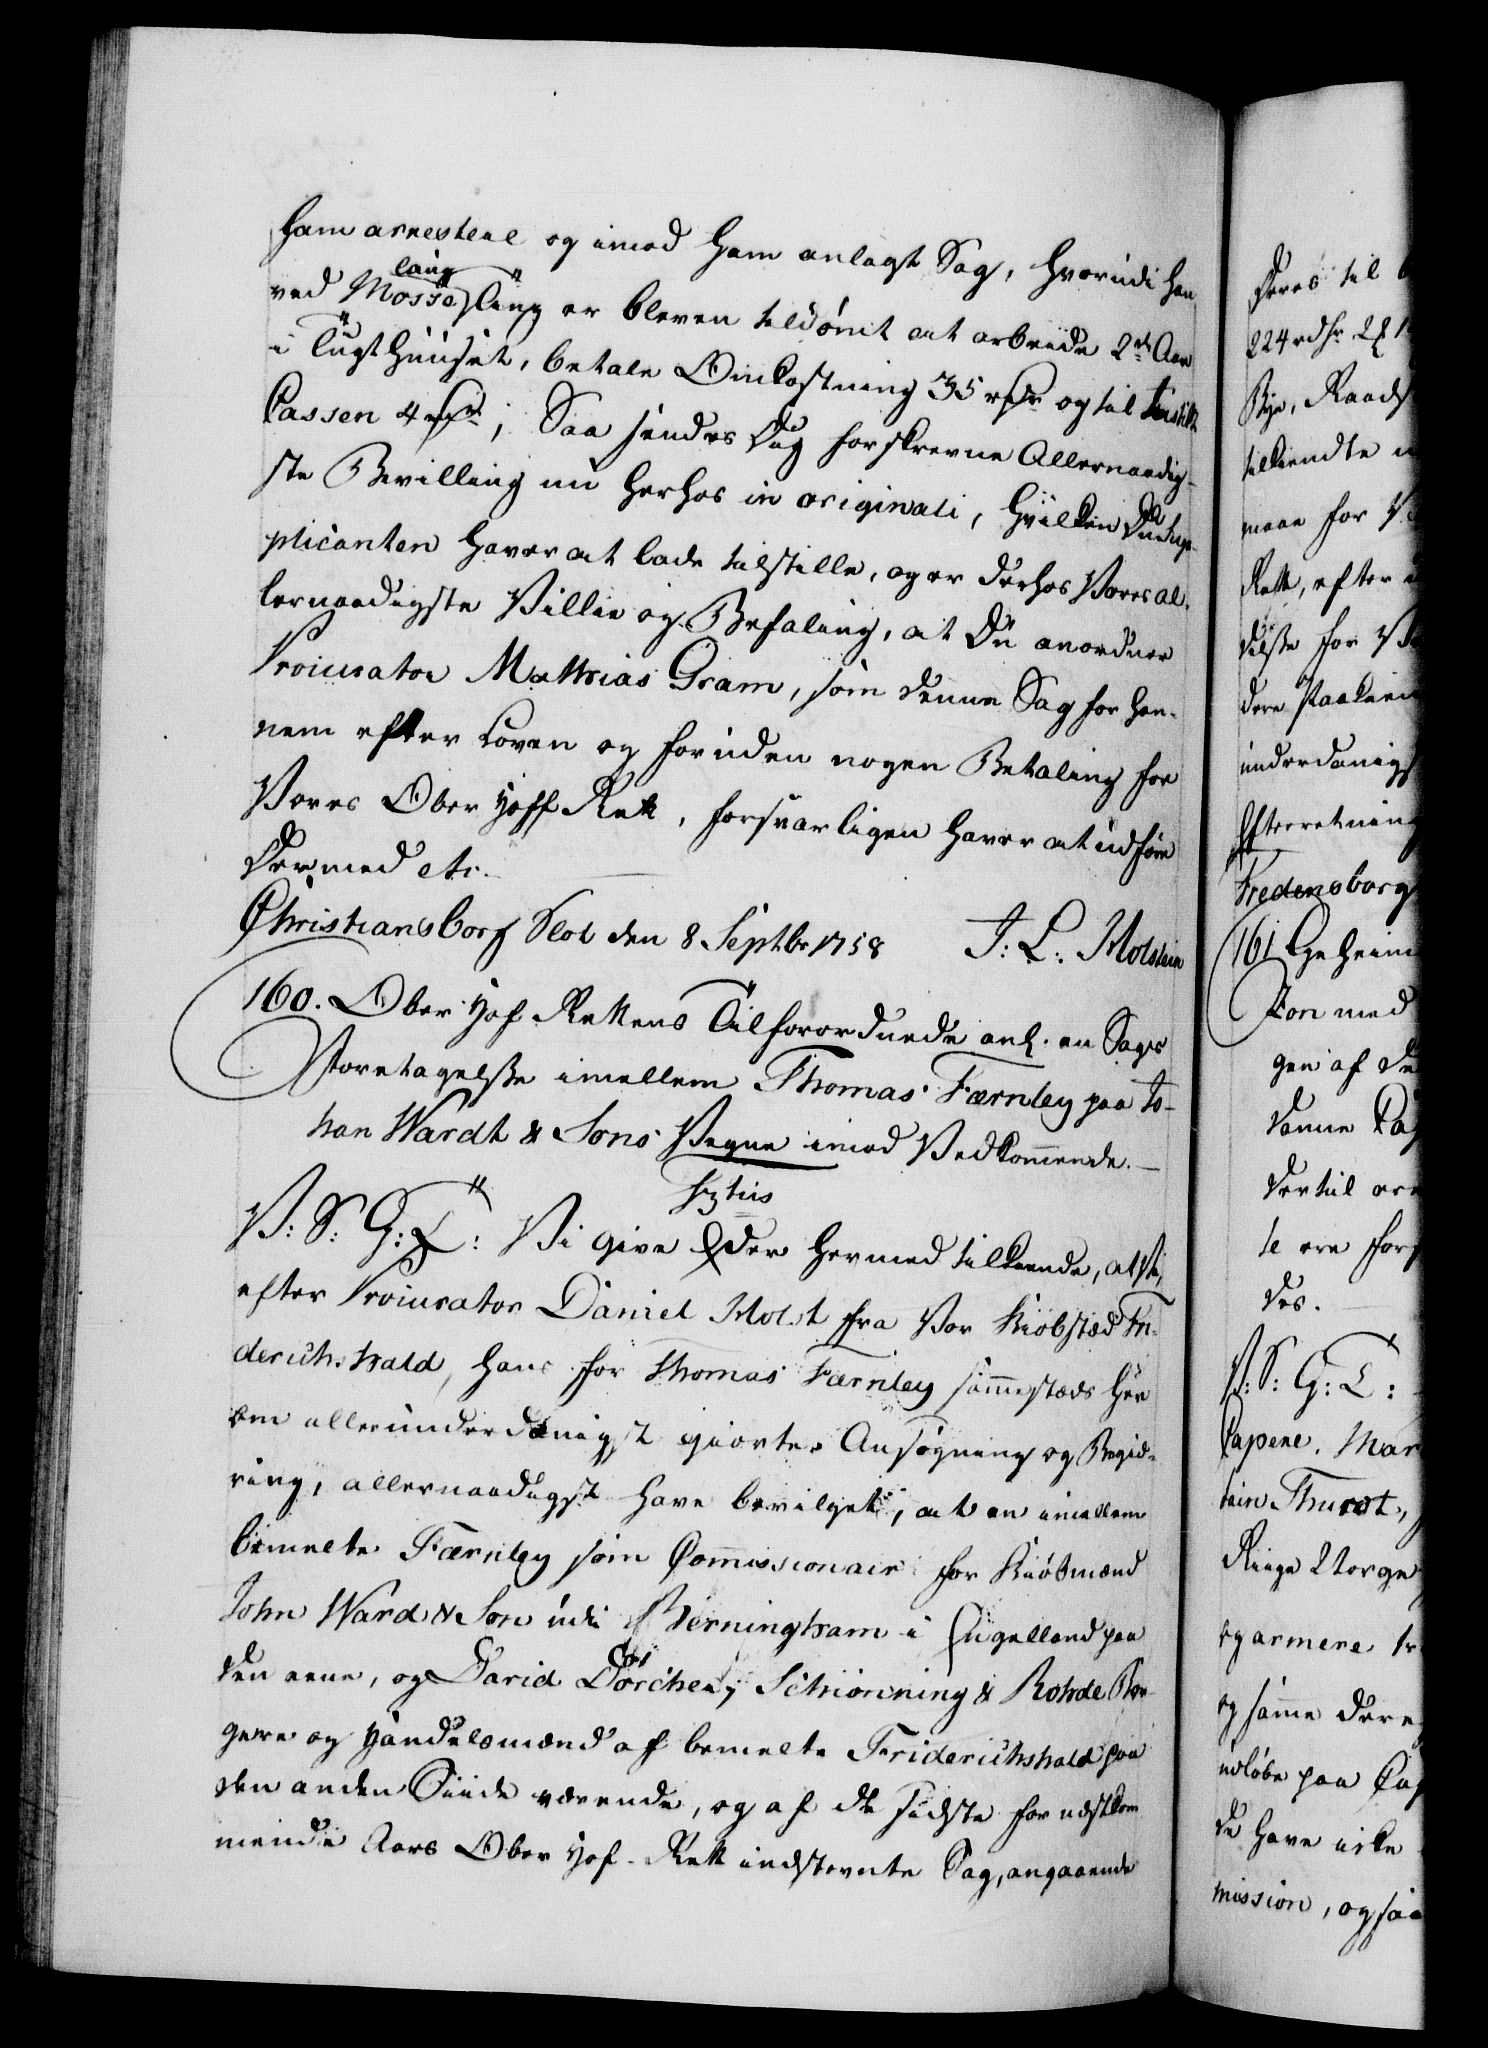 ham arrestere og imod ham anlagt Sag, hvorudi han
laug
ved Mosse Ting er bleven tildömt at arbeide 2de Aar
i Tugt Huuset, betale Omkostning 35 rdr og til Justitz
Cassen 4 rdr; Saa sendes Dig forskrevne Allernaadig-
ste Bevilling nu herhos in originali, hvilken Du Sup-
plicanten haver at lade tilstille, og er derhos Vores al-
lernaadigste Villie og Befaling, at Du anordner
Procurator Mathias Gram, som denne Sag for hen-
nem efter Loven og foruden nogen Betaling for
Vores Ober Hoff Rett, forsvarligen haver at udföre
Dermed etc.
Christiansborg Slot den 8 Septbr 1758 J: L: Holstein
160. Ober Hof Rettens Tilforordnede anl. en Sags
Foretagelsse imellem Thomas Færnley paa Jo-
han Wardt & Sons Vegne imod Vedkommende.
V: S: G: T: Vi give Eder hermed tilkiende, at Vi,
efter Procurator Daniel Holst fra Vor Kiöbstæd Fri-
derichshald, hans for Thomas Færnley sammestæds her
om allerunderdanigst giorte Ansøgning og Begiæ-
ring, allernaadigst have bevilget, at en imellem
bemelte Færnley som Commissionair for Kiöbmænd
John Ward & Son udi Berningham i Engelland paa
den eene, og David Dörcher, Schiönning & Rohde Bor-
gere og Handelsmænd af bemelte Friderichshald paa
den anden Siide værende, og af de sidste for næstkom
mende Aars Ober Hof-Rett indstevnte Sag, angaaende
Deres til
224 rdr 2 
Bye, Raads
tilkiendte
meer for V
Rett, efter
delsse for V
dere Paakien
underdanigs
Efterretning
Fredensborg
161 Geheim
Lon med
gen af de
danne Ca
dertil ere
te ere for
des.
V: S: G: T:
Capere. Mar
tain Thurot,
Riige Norge
og armere
og samme dere
udløbe paa Ca
de have icke
mission, og saa